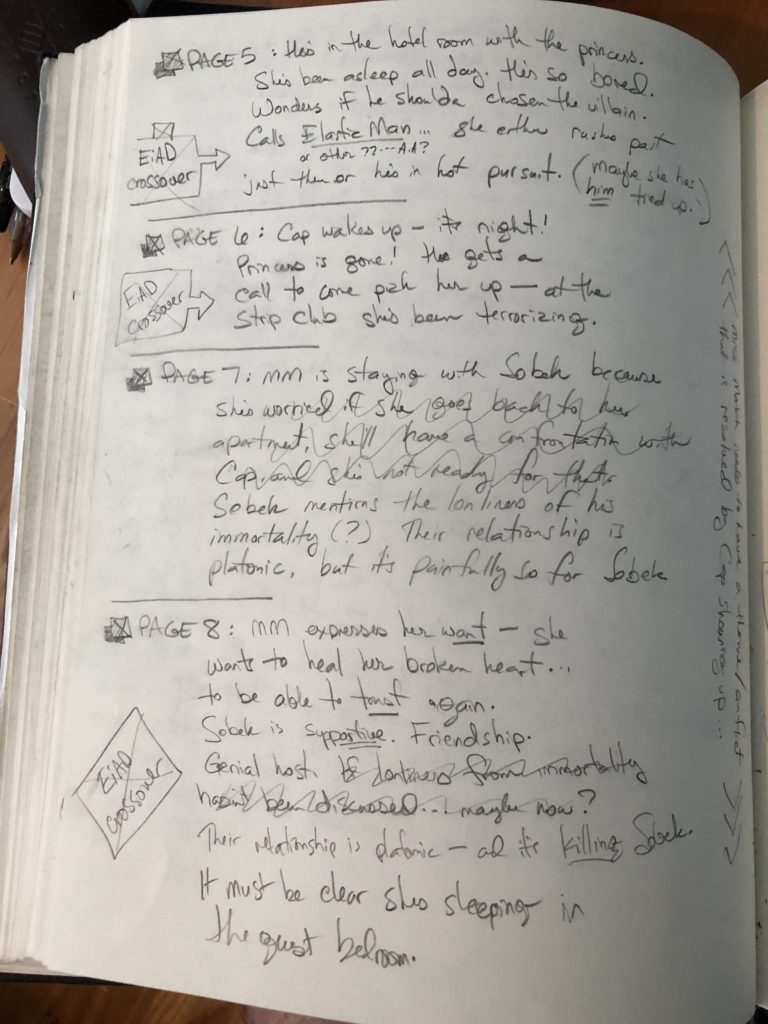 PAGE 5 : He's in the hotel room with the princess.
She's been asleep all day. He's so bored.
Wonders if he shoulda chosen the villain.
Calls Elastic Man... she either rushes past
or other ??... A.A?
just then or he's in hot pursuit. (maybe she has
him tied up.)
EiAD
crossover
PAGE 6 : Cap wakes up – it's night!
Princess is gone! He gets a
call to come pick her up – at the
strip club she's been terrorizing.
EiAD
crossover
PAGE 7 : MM is staying with Sobek because
she's worried if she goes back to her
apartment, she'll have a confrontation with
Cap, and she's not ready for that.
Sobek mentions the lonliness of his
immortality (?) Their relationship is
platonic, but it's painfully so for Sobek
PAGE 8 : MM expresses her want – she
wants to heal her broken heart...
to be able to trust again.
Sobek is supportive. Friendship.
Genial host. If lonliness from immortality
hasn't been discussed... maybe now?
Their relationship is platonic – and it's killing Sobek.
It must be clear she's sleeping in
the guest bedroom.
EiAD
crossover
<<< Miss needs to have a theme/conflict
that is resolved by Cap showing up... >>>